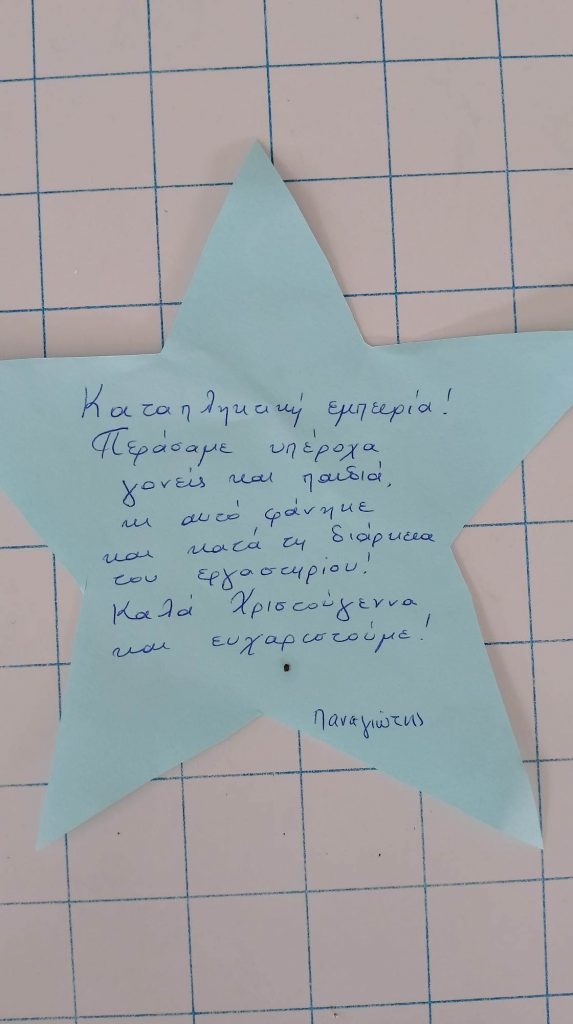 Καταπληκτική εμπειρία!
Περάσαμε υπέροχα
γονείς και παιδιά,
κι αυτό φάνηκε
και κατά τη διάρκεια
του εργαστηρίου!
Καλά Χριστούγεννα
και ευχαριστούμε!
Παναγιώτης